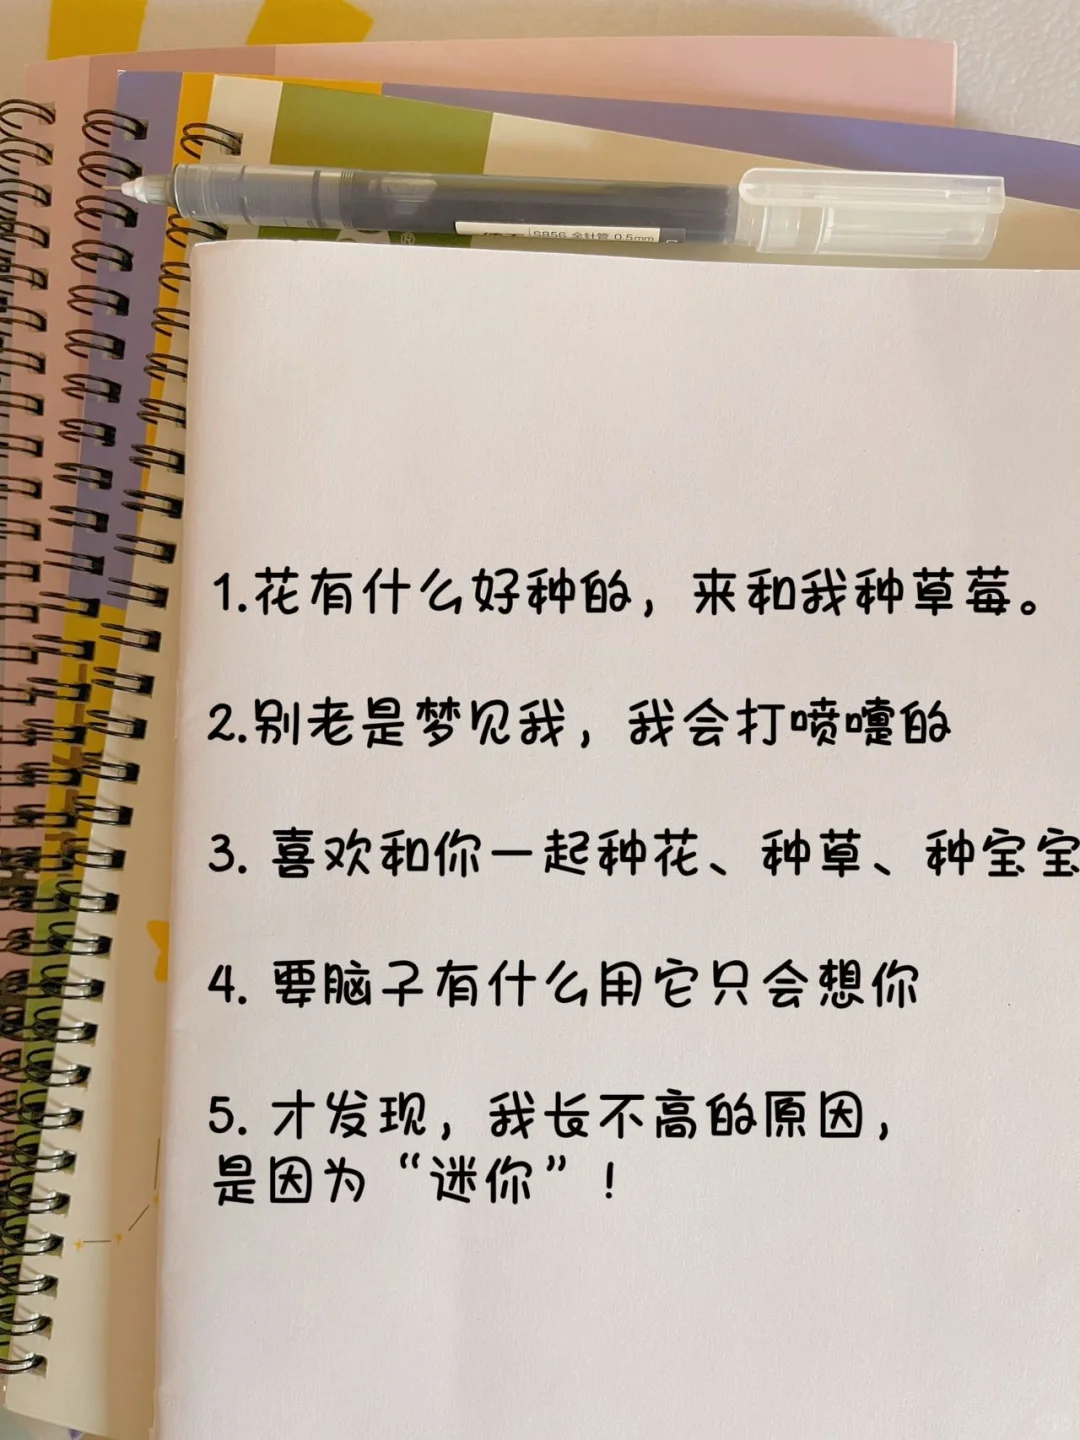 ® S856 全针管 0.5mm
1.花有什么好种的，来和我种草莓。
2.别老是梦见我，我会打喷嚏的
3. 喜欢和你一起种花、种草、种宝宝
4. 要脑子有什么用它只会想你
5. 才发现，我长不高的原因，
是因为“迷你”！